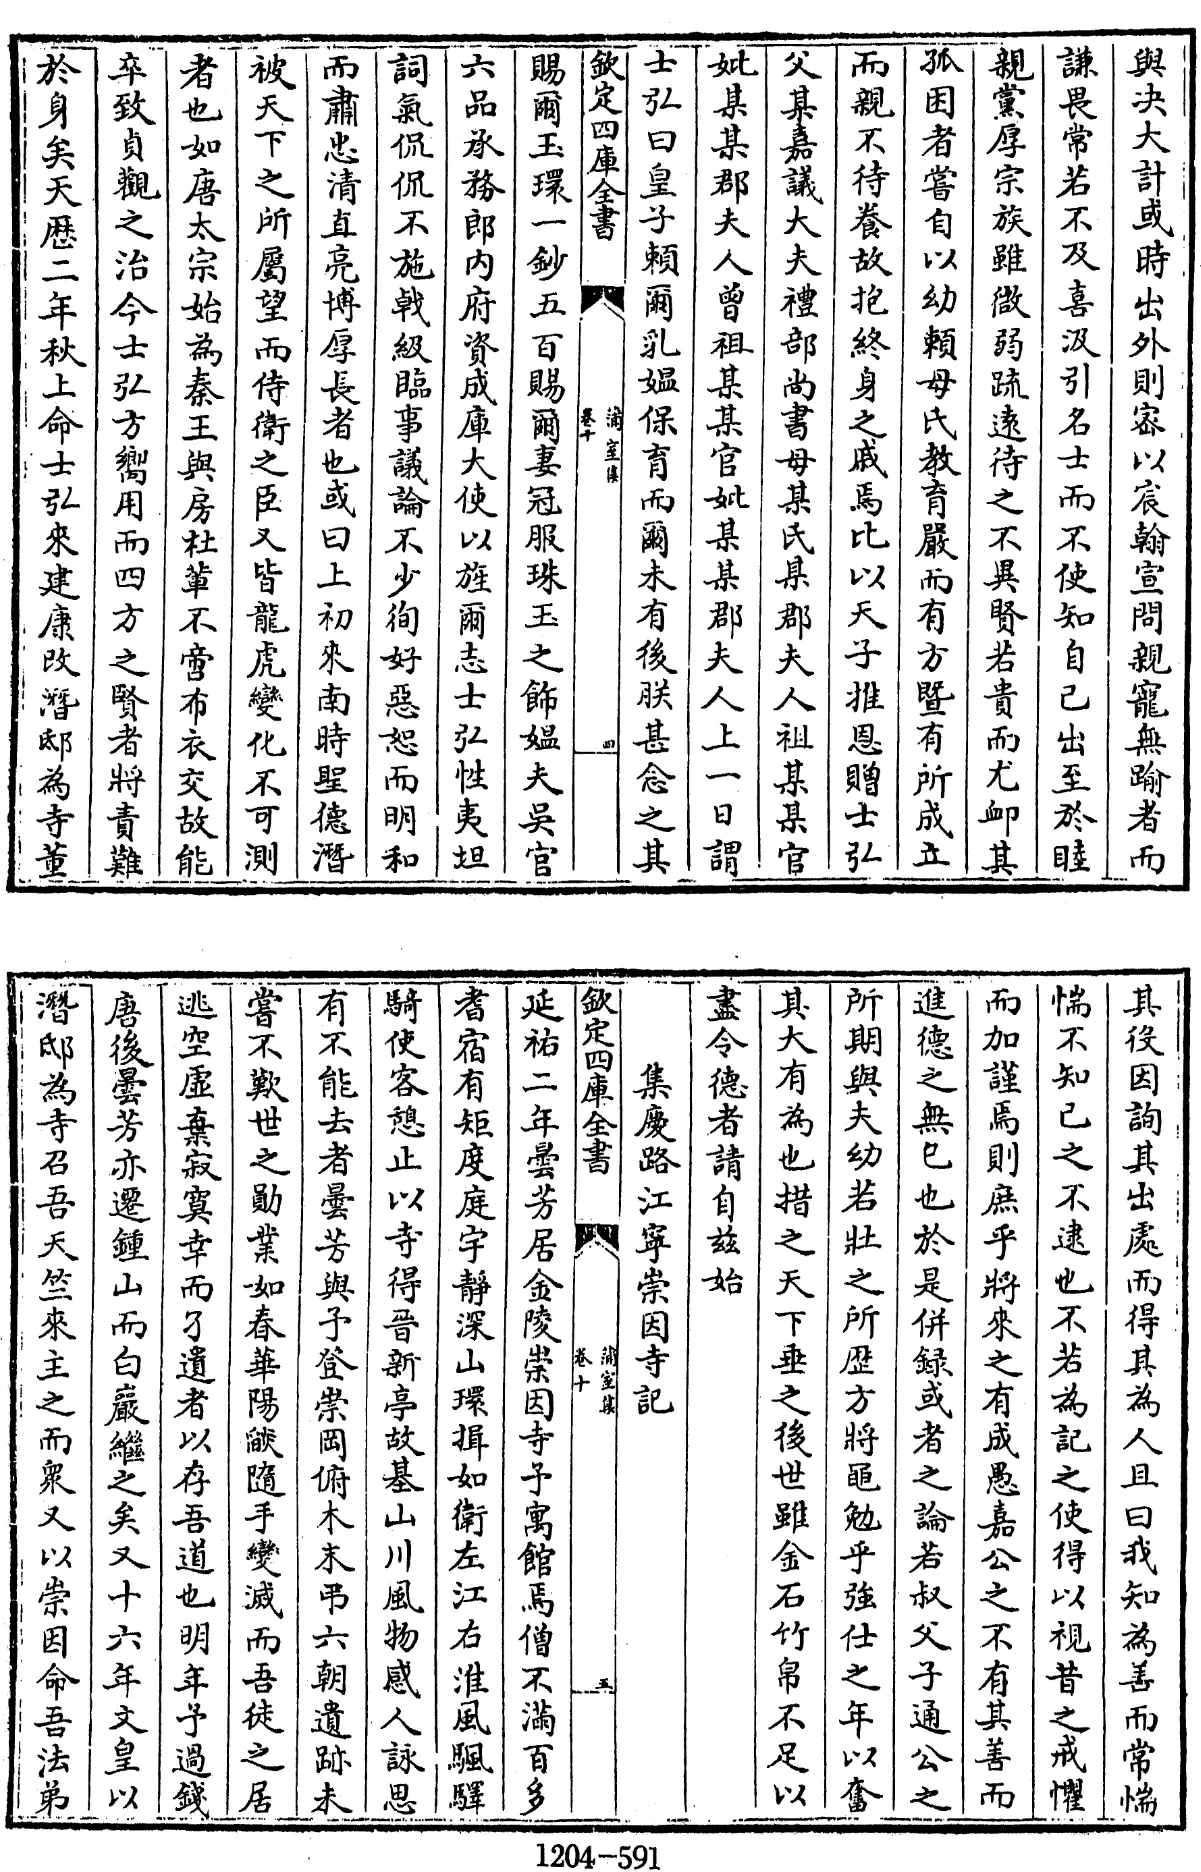 與决大計或時出外則宻以宸翰宣問親寵無踰者而
謙畏常若不及喜汲引名士而不使知自己出至於睦
親黨厚宗族雖微弱疏逺待之不異賢若貴而尤卹其
孤困者嘗自以幼賴母氏教育嚴而有方暨有所成立
而親不待養故抱終身之戚焉比以天子推恩贈士弘
父某嘉議大夫禮部尚書母某氏某郡夫人祖某某官
妣某某郡夫人曾祖某某官妣某某郡夫人上一日謂
士弘曰皇子頼爾乳媪保育而爾未有後朕甚念之其
欽定四庫全書
蒲室集
卷十
四
賜爾玉環一鈔五百賜爾妻冠服珠玉之飾媪夫吳官
六品承務郎内府資成庫大使以旌爾志士弘性夷坦
詞氣侃侃不施戟級臨事議論不少徇好惡恕而明和
而肅忠清直亮博厚長者也或曰上初來南時聖德潛
被天下之所屬望而侍衛之臣又皆龍虎變化不可測
者也如唐太宗始為秦王與房杜軰不啻布衣交故能
卒致貞觀之治今士弘方嚮用而四方之賢者將責難
於身矣天歴二年秋上命士弘來建康改潛邸為寺董
其役因詢其出處而得其為人且曰我知為善而常惴
惴不知已之不逮也不若為記之使得以視昔之戒懼
而加謹焉則庶乎將來之有成愚嘉公之不有其善而
進德之無已也於是併録或者之論若叔父子通公之
所期與夫幼若壯之所歴方將黽勉乎強仕之年以奮
其大有為也措之天下垂之後世雖金石竹帛不足以
盡令德者請自兹始
集慶路江寧崇因寺記
欽定四庫全書
蒲室集
卷十
五
延祐二年曇芳居金陵崇因寺予寓館焉僧不滿百多
耆宿有矩度庭宇靜深山環揖如衛左江右淮風颿驛
騎使客憩止以寺得晉新亭故基山川風物感人詠思
有不能去者曇芳與予登崇岡俯木末弔六朝遺跡未
嘗不歎世之勛業如春華陽燄隨手變滅而吾徒之居
逃空虛棄寂寞幸而了遺者以存吾道也明年予過錢
唐後曇芳亦遷鍾山而白巖繼之矣又十六年文皇以
潛邸為寺召吾天竺來主之而衆又以崇因命吾法弟
1204-591